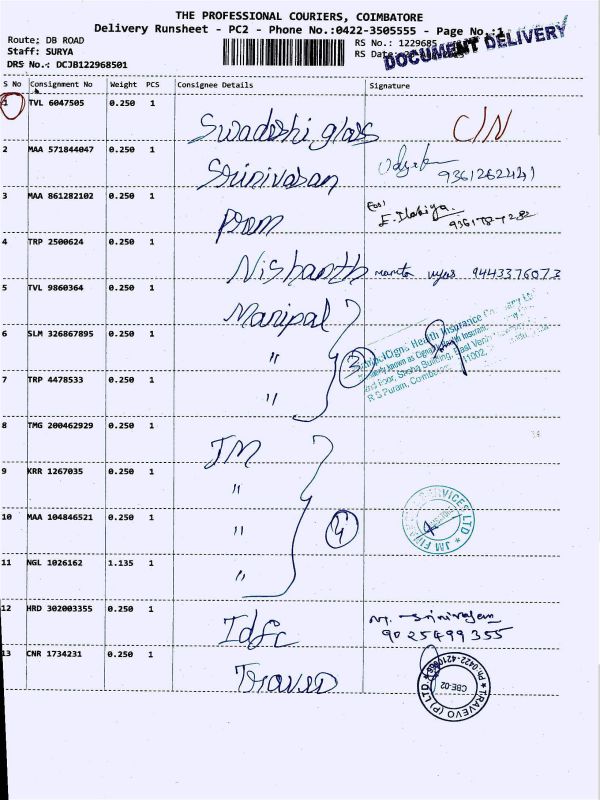 THE PROFESSIONAL COURIERS, COIMBATORE
Delivery Runsheet - PC2 - Phone No.:0422-3505555 - Page No.:1
Route; DB ROAD
RS No.: 1229685
Staff: SURYA
RS Date:
DOCUMENT DELIVERY
DRS No.: DCJB122968501
S No Consignment No Weight PCS Consignee Details Signature
1 TVL 6047505 0.250 1 Swadeshi glass C/N
2 MAA 571844047 0.250 1 Srinivasan 9361262441
3 MAA 861282102 0.250 1 Prem
4 TRP 2500624 0.250 1 Nishanth mamta vyas 9443376073
5 TVL 9860364 0.250 1 Manipal
6 SLM 326867895 0.250 1 " 3
7 TRP 4478533 0.250 1 "
ManipalCigna Health Insurance Company Ltd
R S Puram, Coimbatore
8 TMG 200462929 0.250 1 JM
9 KRR 1267035 0.250 1 "
10 MAA 104846521 0.250 1 " 4
JM FINANCIAL SERVICES LTD
11 NGL 1026162 1.135 1 "
12 HRD 302003355 0.250 1 Idfc M. Srinivasan
9025499355
13 CNR 1734231 0.250 1 Traveo
TRAVEVO (P) LTD
CBE-02